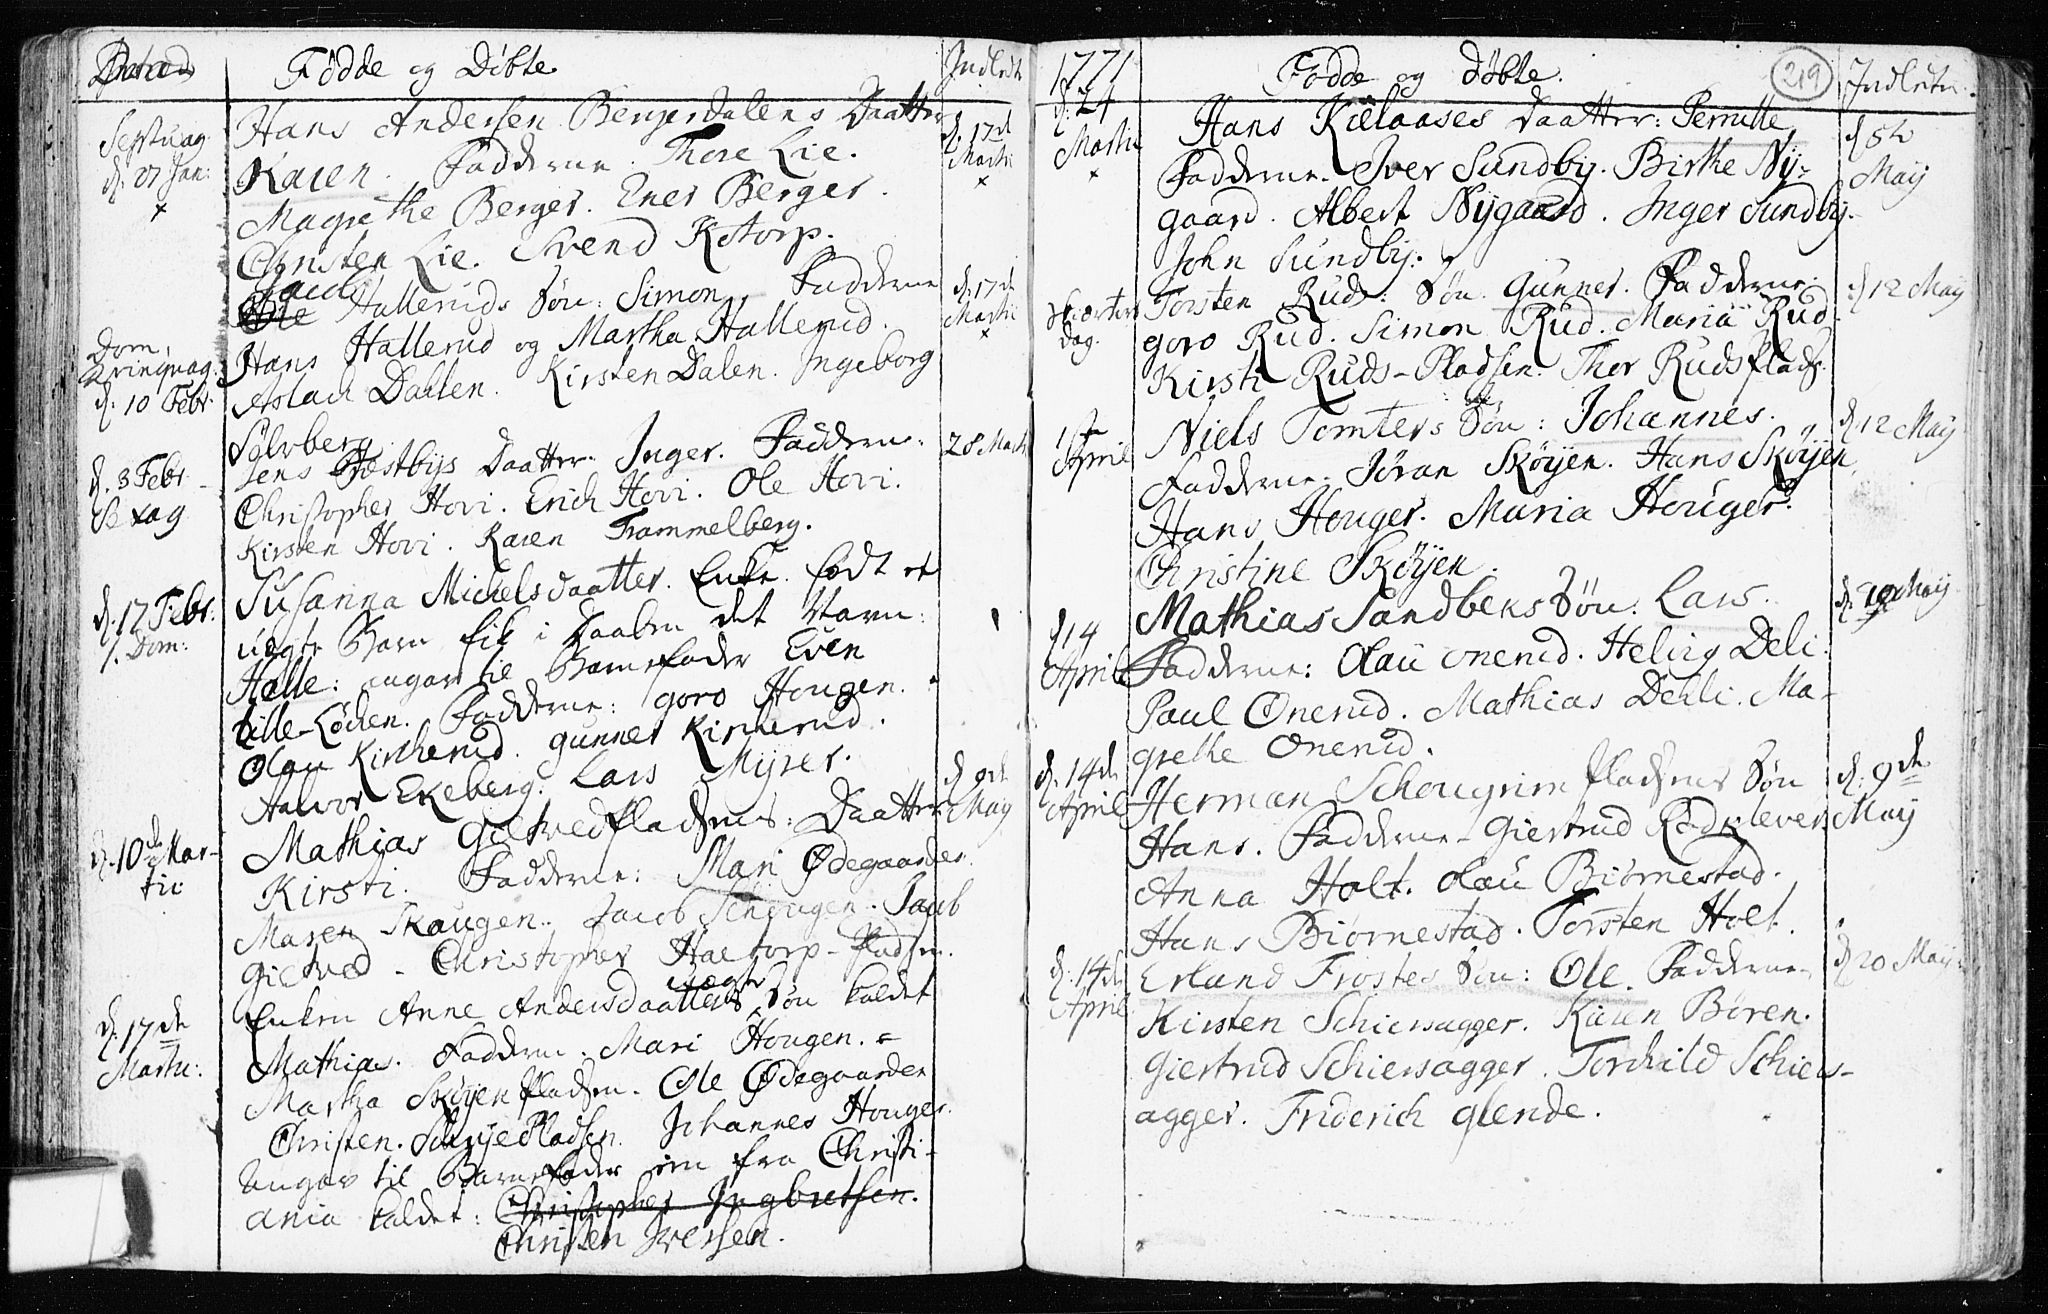 Fødde og Døbte
Indledte
Septuag
d. 27 Jan:
Hans Andersen Bergerdalens Daatter
Karen. Fadderne. Thore Lie.
Magrethe Berger. Ener Berger.
Christen Lie. Svend Kstorp.
d. 17de
Martii
Dom.
Qvinqvag.
d. 10 Febr.
Halleruds Søn: Simon Fadderne
Hans Hallerud og Martha Hallerud.
Aslach Dahlen. Kirsten Dalen. Ingeborg
Sølvberg
d. 17de
Martii
d. 3 Febr
Sexag
Jens Præstbÿs Daatter. Inger. Fadderne:
Christopher Hovi. Erich Hovi. Ole Hovi.
Kirsten Hovi. Karen Trammelberg.
28 Martii
d. 17 Febr:
1. Dom:
Susanna Michelsdaatter. Enke. født et
uægte Barn fik i Daaben det Navn:
Helle: angav til Barnefader Even
Lille-Løchen. Fadderne: Goro Hougen.
Olau Kircherud. Gunner Kircherud.
Halvor Ekeberg. Lars Mÿrer.
d. 10de Mar-
tii
Mathias Gietvedpladsens: Daatter
Kirsti. Fadderne: Mari Ødegaarden
Maren Skaugen. Jacob Schougen. Jacob
Gietved - Christopher Haetorp-Pladsen.
d. 9de
Maÿ
d: 17de
Martii:
Enken Anne Andersdaatters uægte Søn kaldet
Mathias. Fadderne. Mari Hougen.
Martha Skøÿenpladsen. Ole Ødegaarden
Christen. Pladsen. Johannes Houger.
Angav til Barnefader een fra Christi-
ania kaldet: Christopher Ingbretsen.
Christen Iversen.
1771
Fødde og Døbte.
219
Indledte.
d: 24
Martii
Hans Kielaases Daatter: Pernille
Fadderne. Iver Sundbÿ. Birthe Nÿ-
gaard. Albert Nÿgaard. Inger Sundbÿ.
John Sundbÿ.
d 5te
Maÿ
Skiærtors
dag.
Torsten Ruds: Søn. Gunner. Fadderne:
Goro Rud. Simon Rud. Maria Rud
Kirsti Ruds-Pladsen. Thor Rudsplads.
d 12 Maÿ
1ste
April
Niels Tomters Søn: Johannes.
Fadderne. Jøran Skøÿen. Hans Skøÿen,
Hans Houger. Maria Houger.
Christine Skøÿen.
d 12 Maÿ
d 14
April
Mathias Sandbeks Søn: Lars.
Fadderne: Olau Onerud. Helvig Deli.
Paul Onerud. Mathias Dehli. Ma-
grethe Onerud.
d. Maÿ
d. 14de
April
Herman Schougrim pladsens Søn
Hans. Fadderne - Giertrud Rødklever
Anna Holt. Olau Biørnestad.
Hans Biørnestad. Torsten Holt.
d. 9de
Maÿ
d: 14de
April
Erland Frostes Søn: Ole. Fadderne
Kirsten Schiersagger. Karen Børen.
Giertrud Schiersagger. Torchild Schiers-
agger. Friderich Glende.
d 20 Maÿ